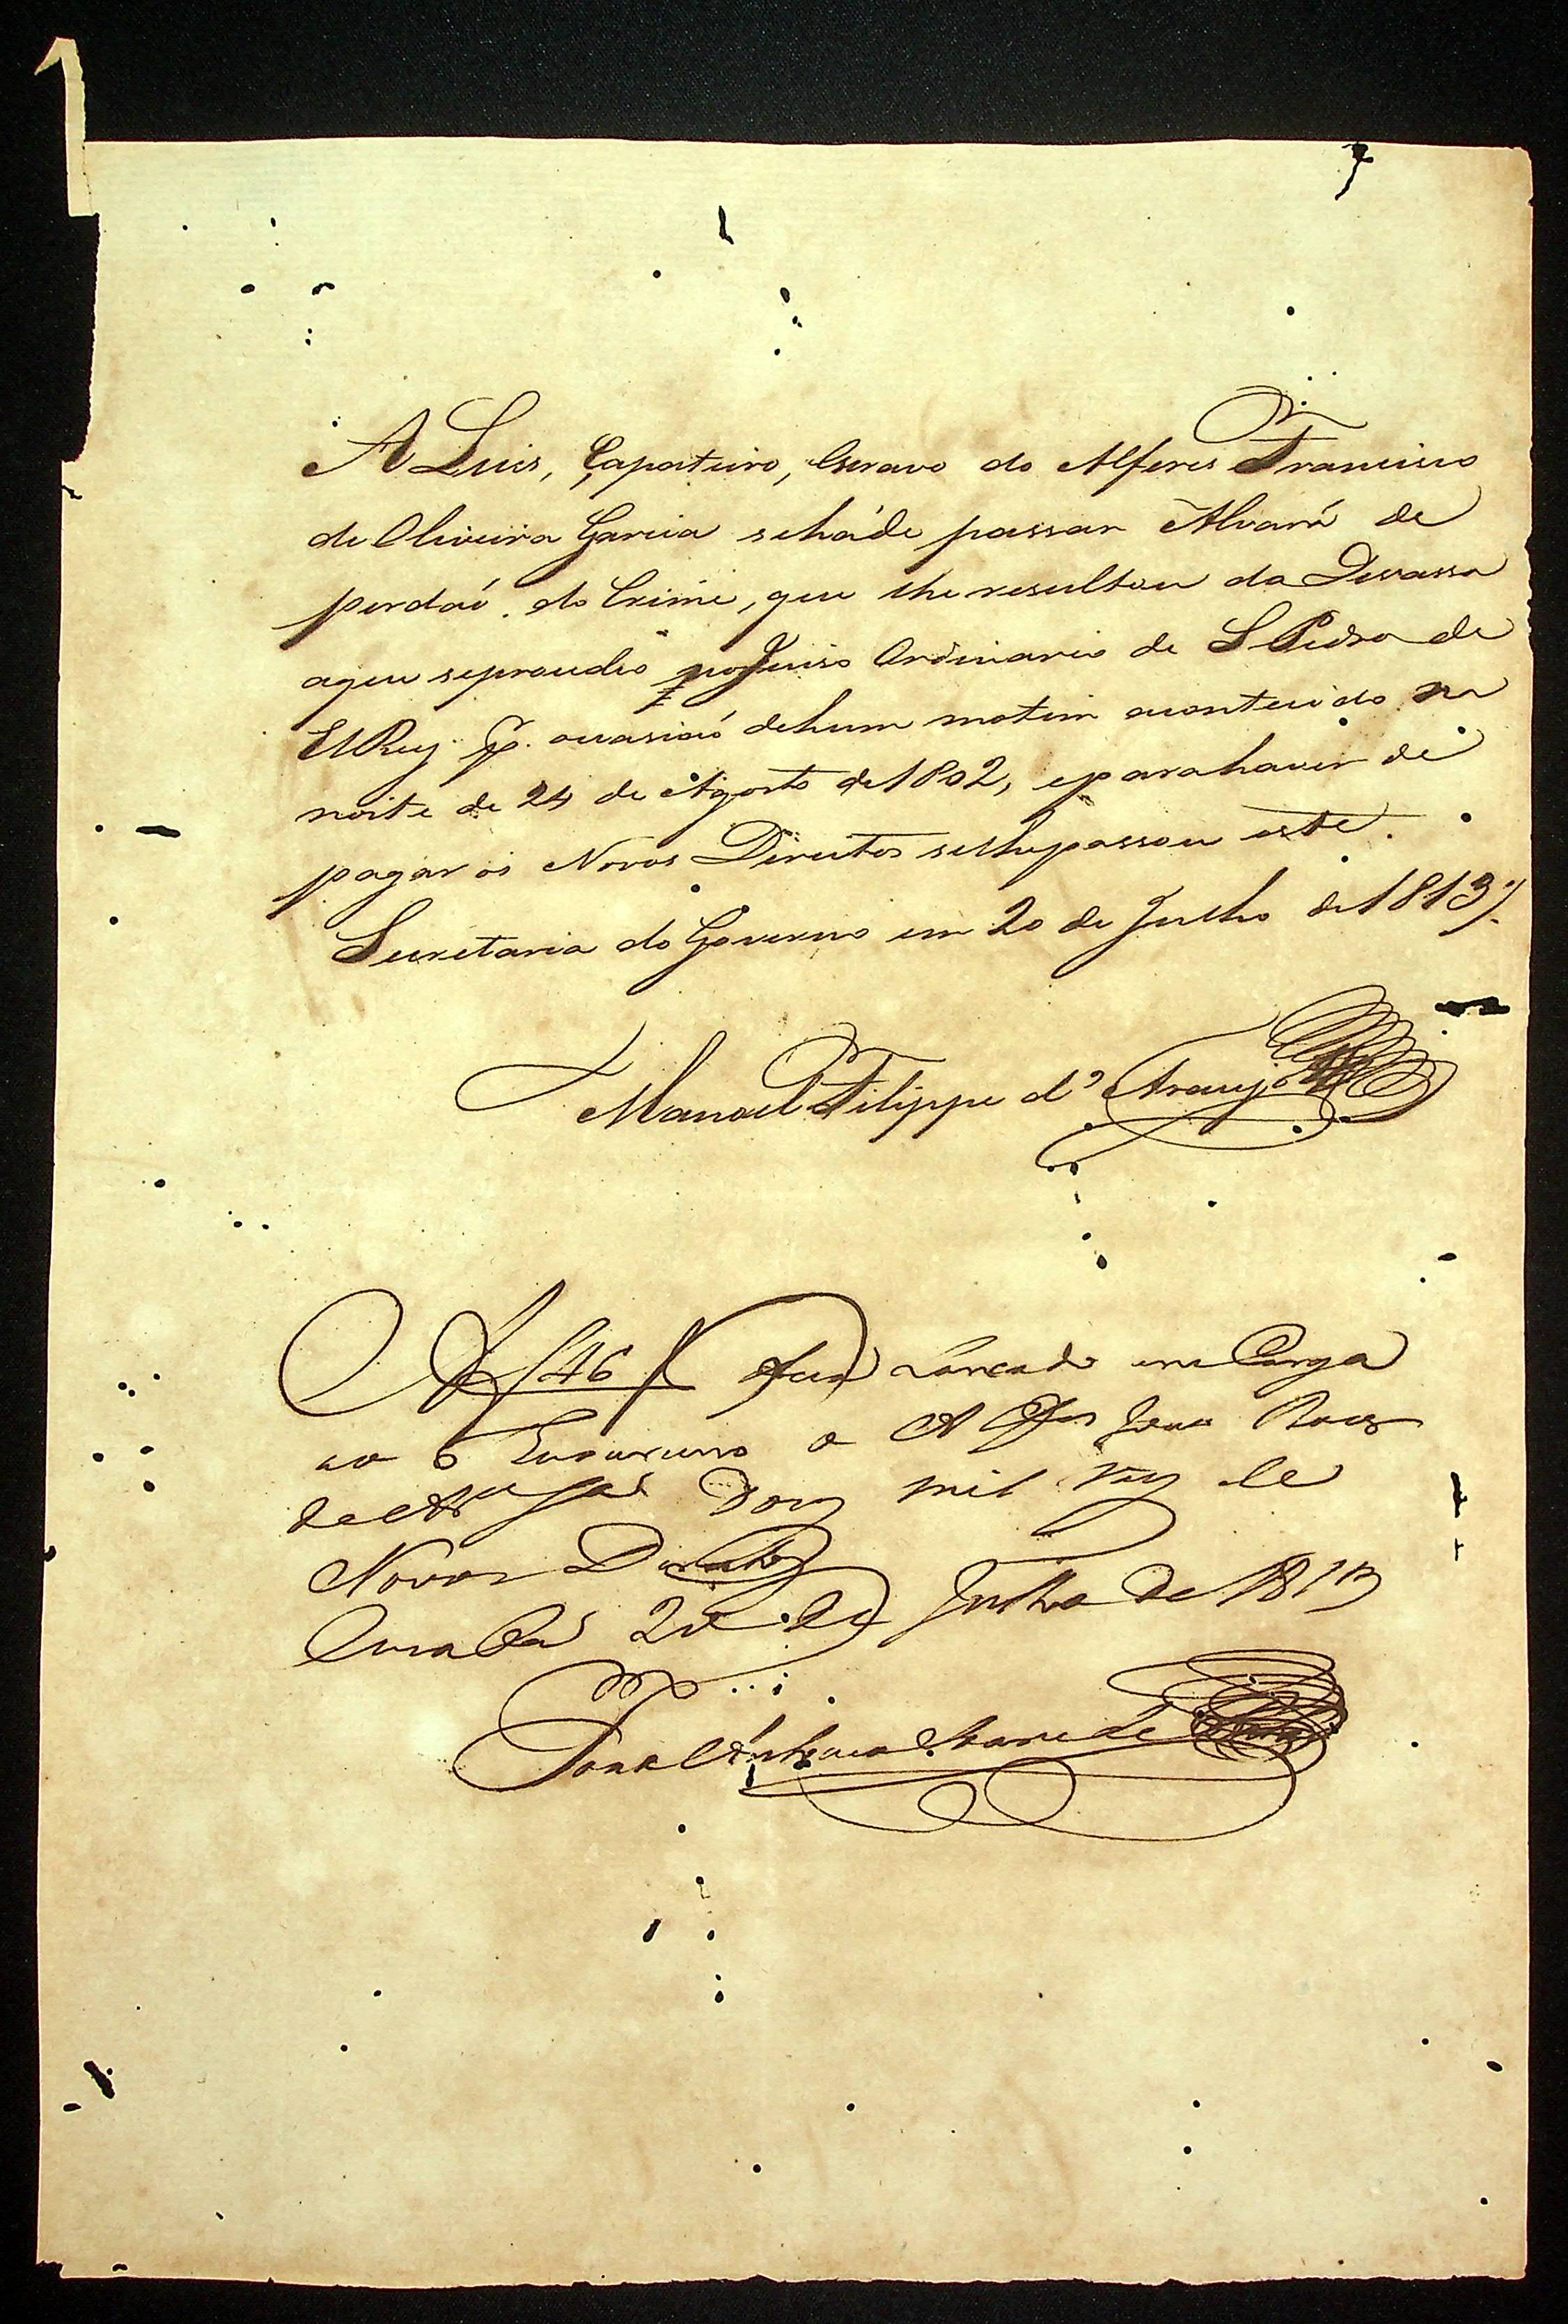 A Luis, Çapateiro, Escravo do Alferes Francisco
de Oliveira Garcia seháde passar Alvará de
perdaõ do Crime, que lhe resultou da Devassa
aque seproudeo no Juiso Ordinario de S Pedro de
ElRey p. ocasiaõ dehum motim acontecido na
noite de 24 de Agosto de 1802, eparahaver de
pagar os Novos Direitos selhepassou este.
Secretaria do Governo em 20 de Julho de 1813
Manoel Filippe d'Araujo
A f 46 fica Lancado em Carga
ao o A
Dois mil reis de
Novos Direitos
Cuiabá 20 de Julho de 1813